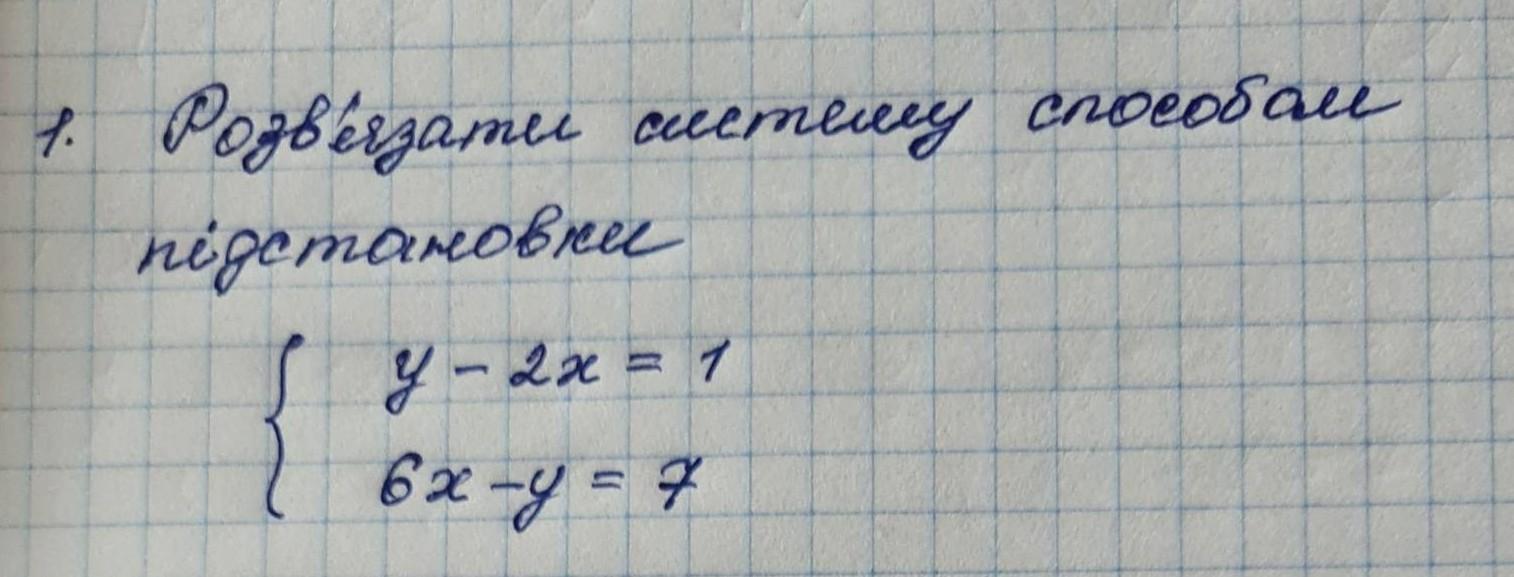 1. Розв'язати систему способом
підстановки
{ y - 2x = 1
6x - y = 7